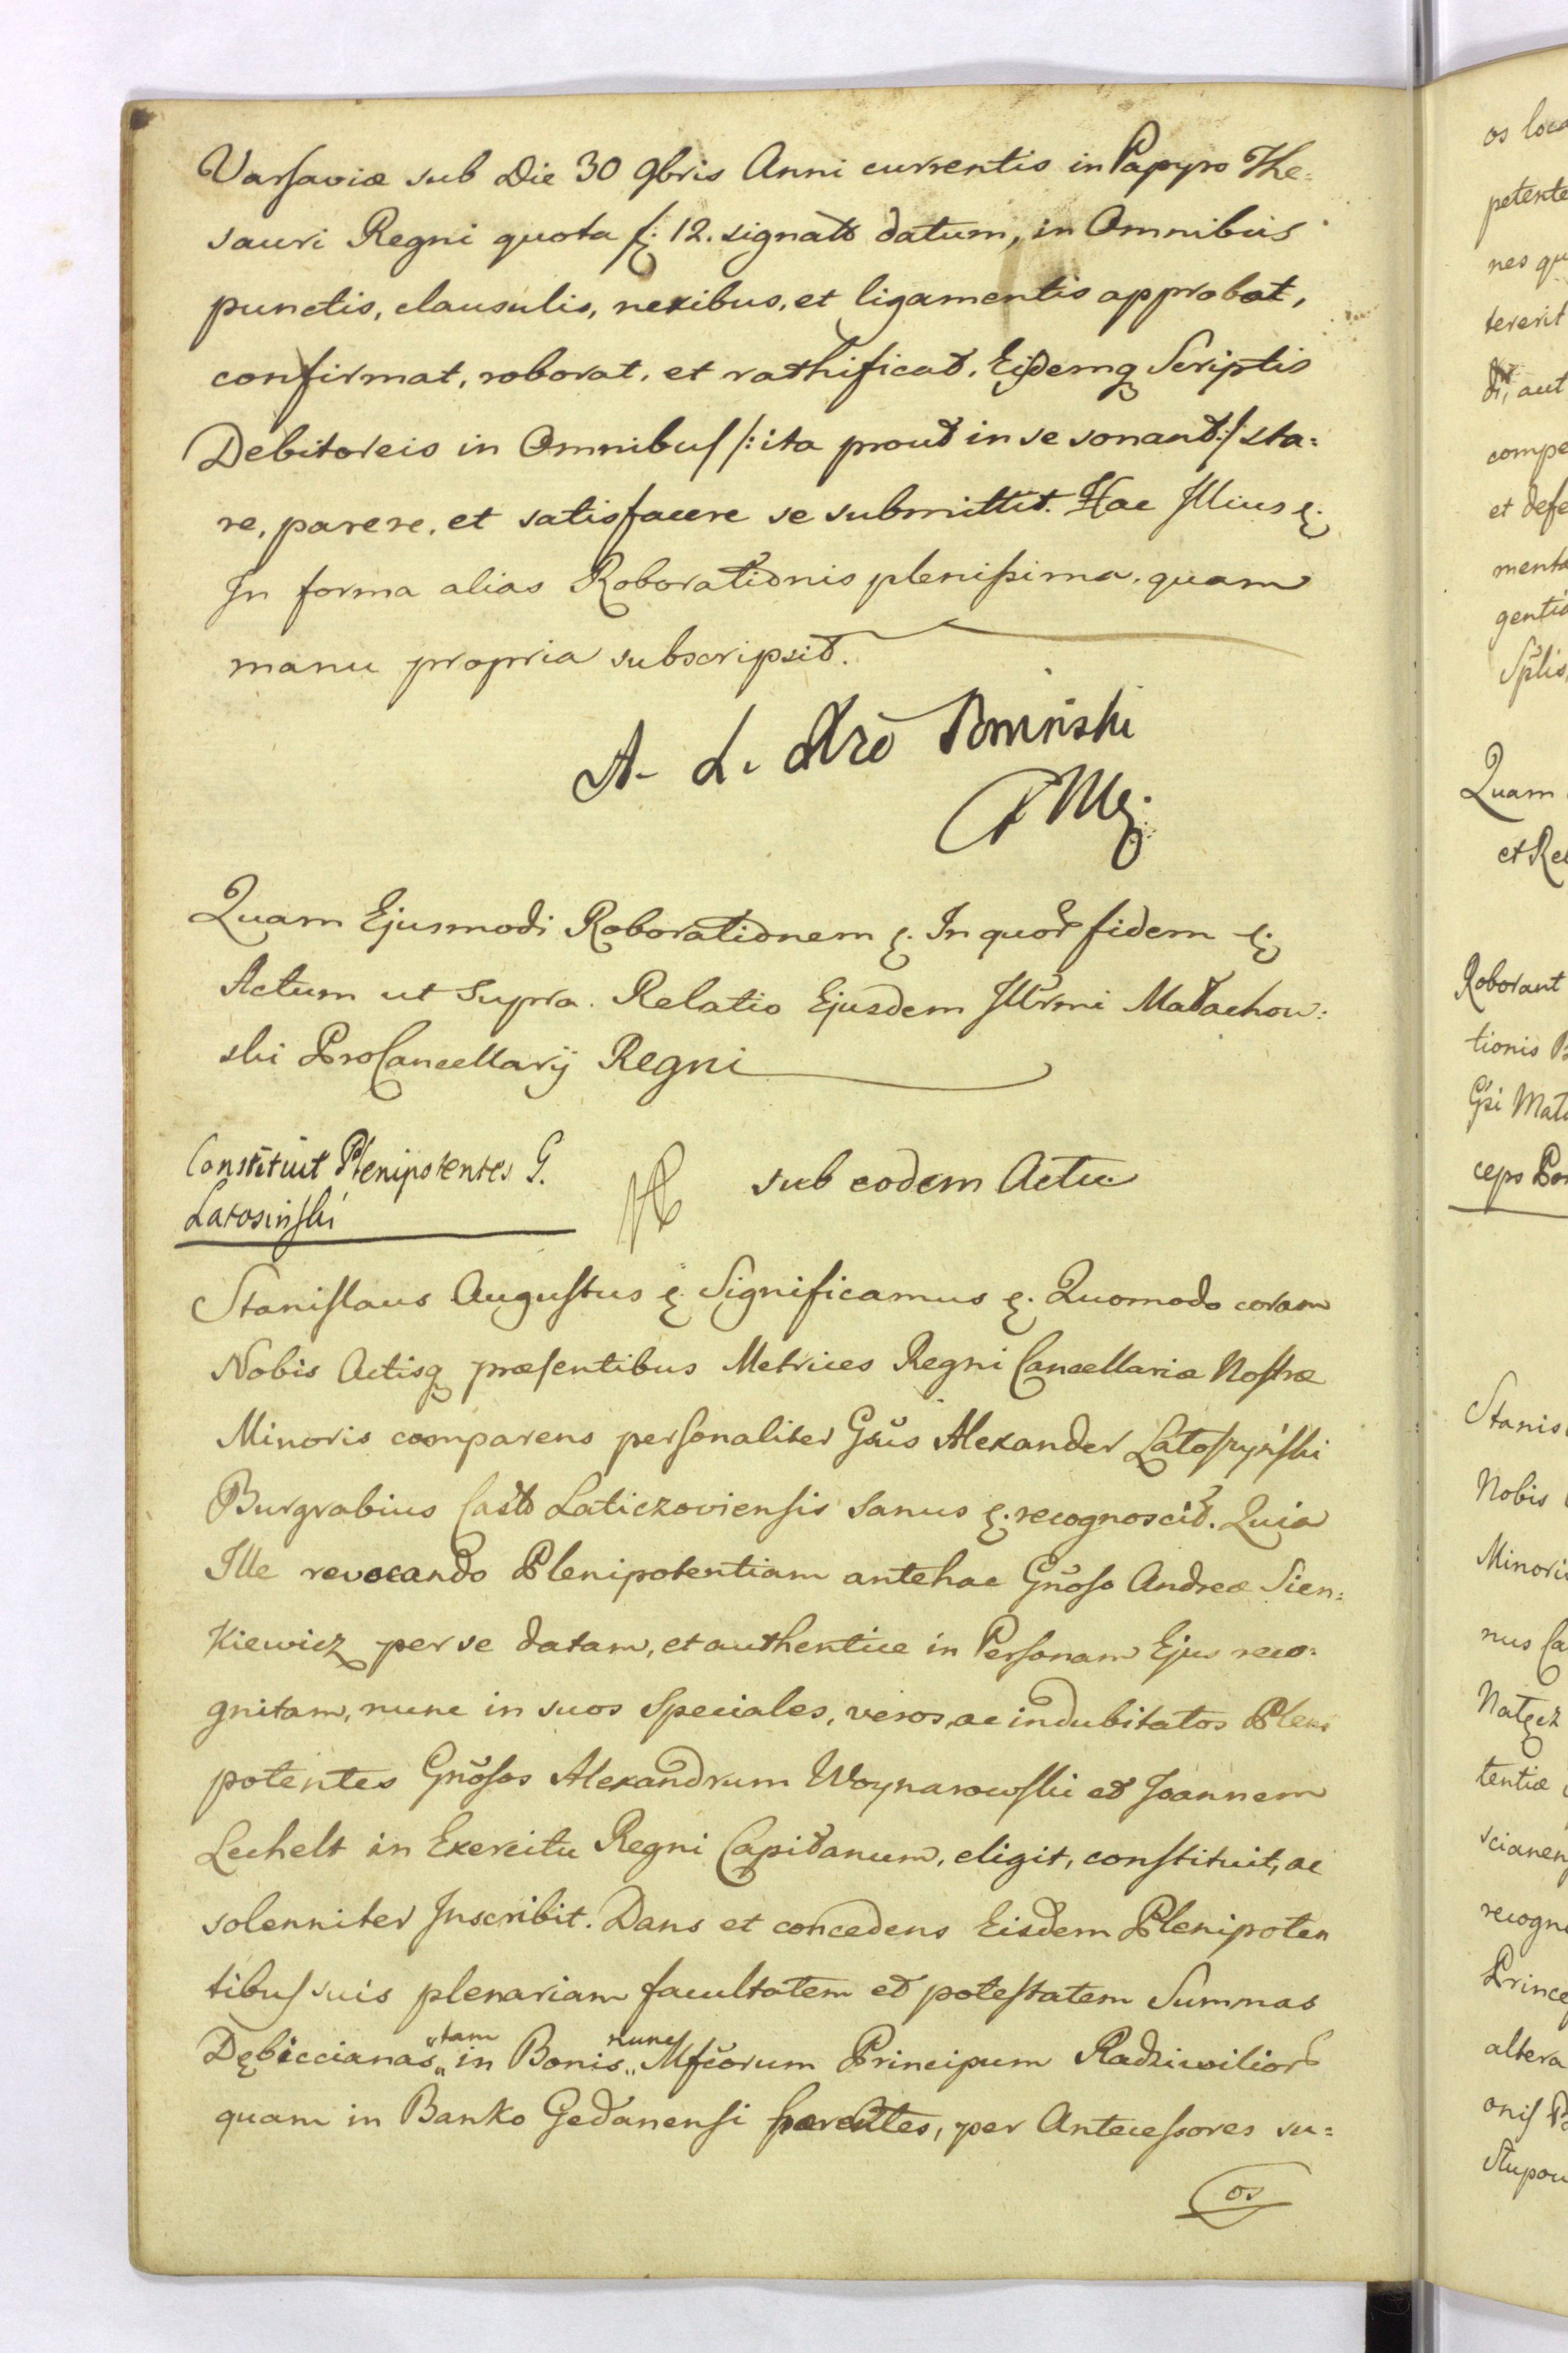 Varsaviæ sub Die 30 9bris Anni currentis in Papyro The=
sauri Regni quota f: 12. signato datum, in Omnibus
punctis, clausulis, nexibus, et ligamentis approbat,
confirmat, roborat, et rathificat, Eisdemq Scriptis
Debitoreis in Omnibus /: ita prout in se sonant :/ sta=
re, parere, et satisfacere se submittit. Hac Illius &.
In forma alias Roborationis plenissima, quam
manu propria subscripsit.
A. Ł. Xżę Poninski
PMę.
Quam Ejusmodi Roborationem &. In quor fidem &.
Actum ut Supra. Relatio Ejusdem Illrmi Małachow=
ski ProCancellarij Regni
Constituit Plenipotentes G.
Latosinski
sub eodem Actu
Stanislaus Augustus &. Significamus &. Quomodo coram
Nobis Actisq præsentibus Metrices Regni Cancellariæ Nostræ
Minoris comparens personaliter Gsus Alexander Latoszyński
Burgrabius Casto Laticzoviensis Sanus &. recognoscit. Quia
Ille revocando Plenipotentiam antehac Gnoso Andreæ Sien=
Kiewicz per se datam, et authentice in Personam Ejus reco=
gnitam, nunc in suos Speciales, veros, ac indubitatos Pleni
potentes Gnosos Alexandrum Woynarowski et Joannem
Lechelt in Exercitu Regni Capitanum, eligit, constituit, ac
solenniter Inscribit. Dans et concedens Eisdem Plenipoten
tibus suis plenariam facultatem et potestatem Summas
Dębiccianas „tam„ in Bonis „nunc„ Mfcorum Principum Radziwilior
quam in Banko Gedanensi hærentes, per Antecessores su=
os
os loca
petente
nes qu
tererit
aut
compe
et defe
menta
gentia
Splis
Quam
et Re
Roborant
tionis
Gsi Mat
ceps Pon
Stanis
Nobis
Minori
nus Ca
Natęcz
tentiæ
scianen
recogn
Prince
altera
onis
Stupou